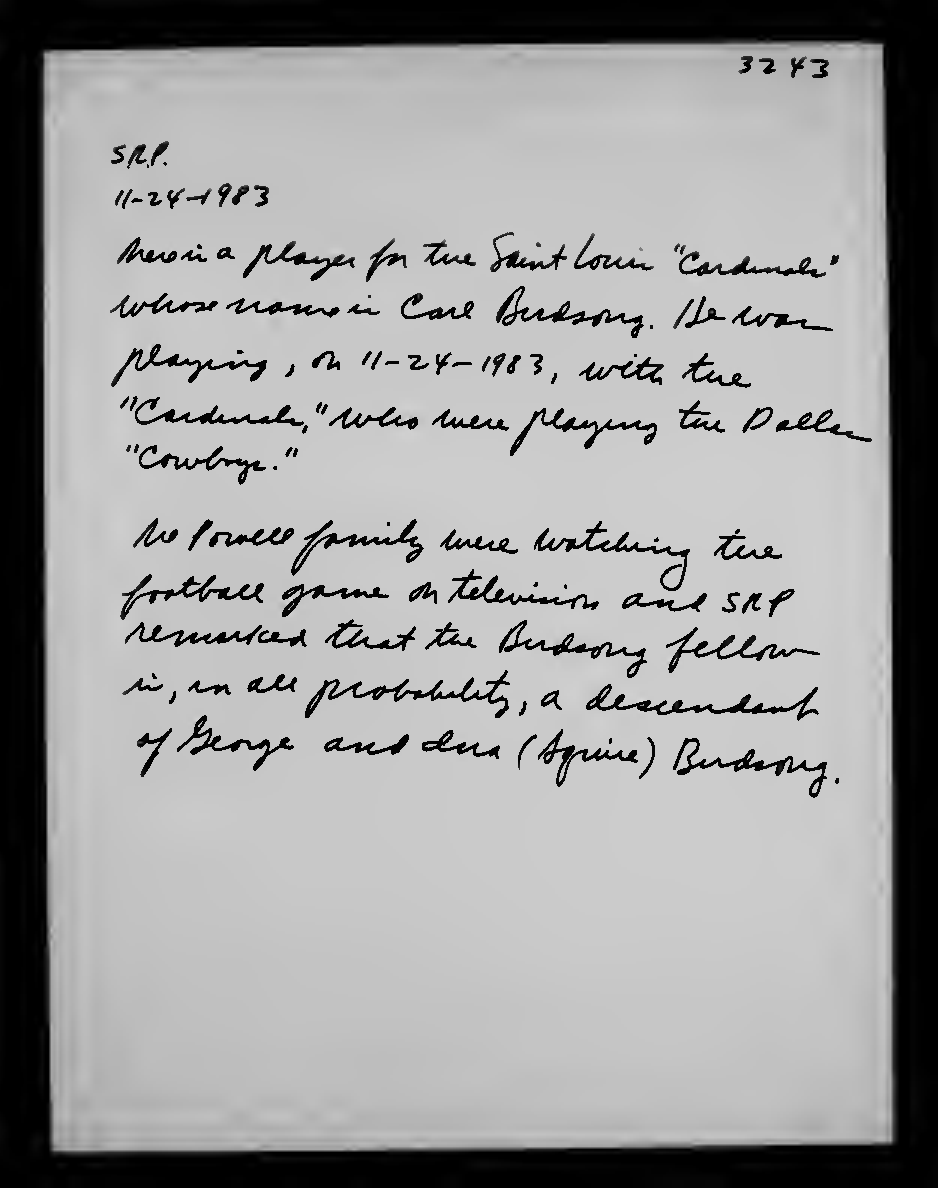 3243
S.R.P.
11-24-1983
There is a player for the Saint Louis "Cardinals"
whose name is Carl Birdsong. He was
playing, on 11-24-1983, with the
"Cardinals," who were playing the Dallas
"Cowboys."
The Powell family were watching the
football game on television and SRP
remarked that the Birdsong fellow
is, in all probability, a descendant
of George and (Squire) Birdsong.